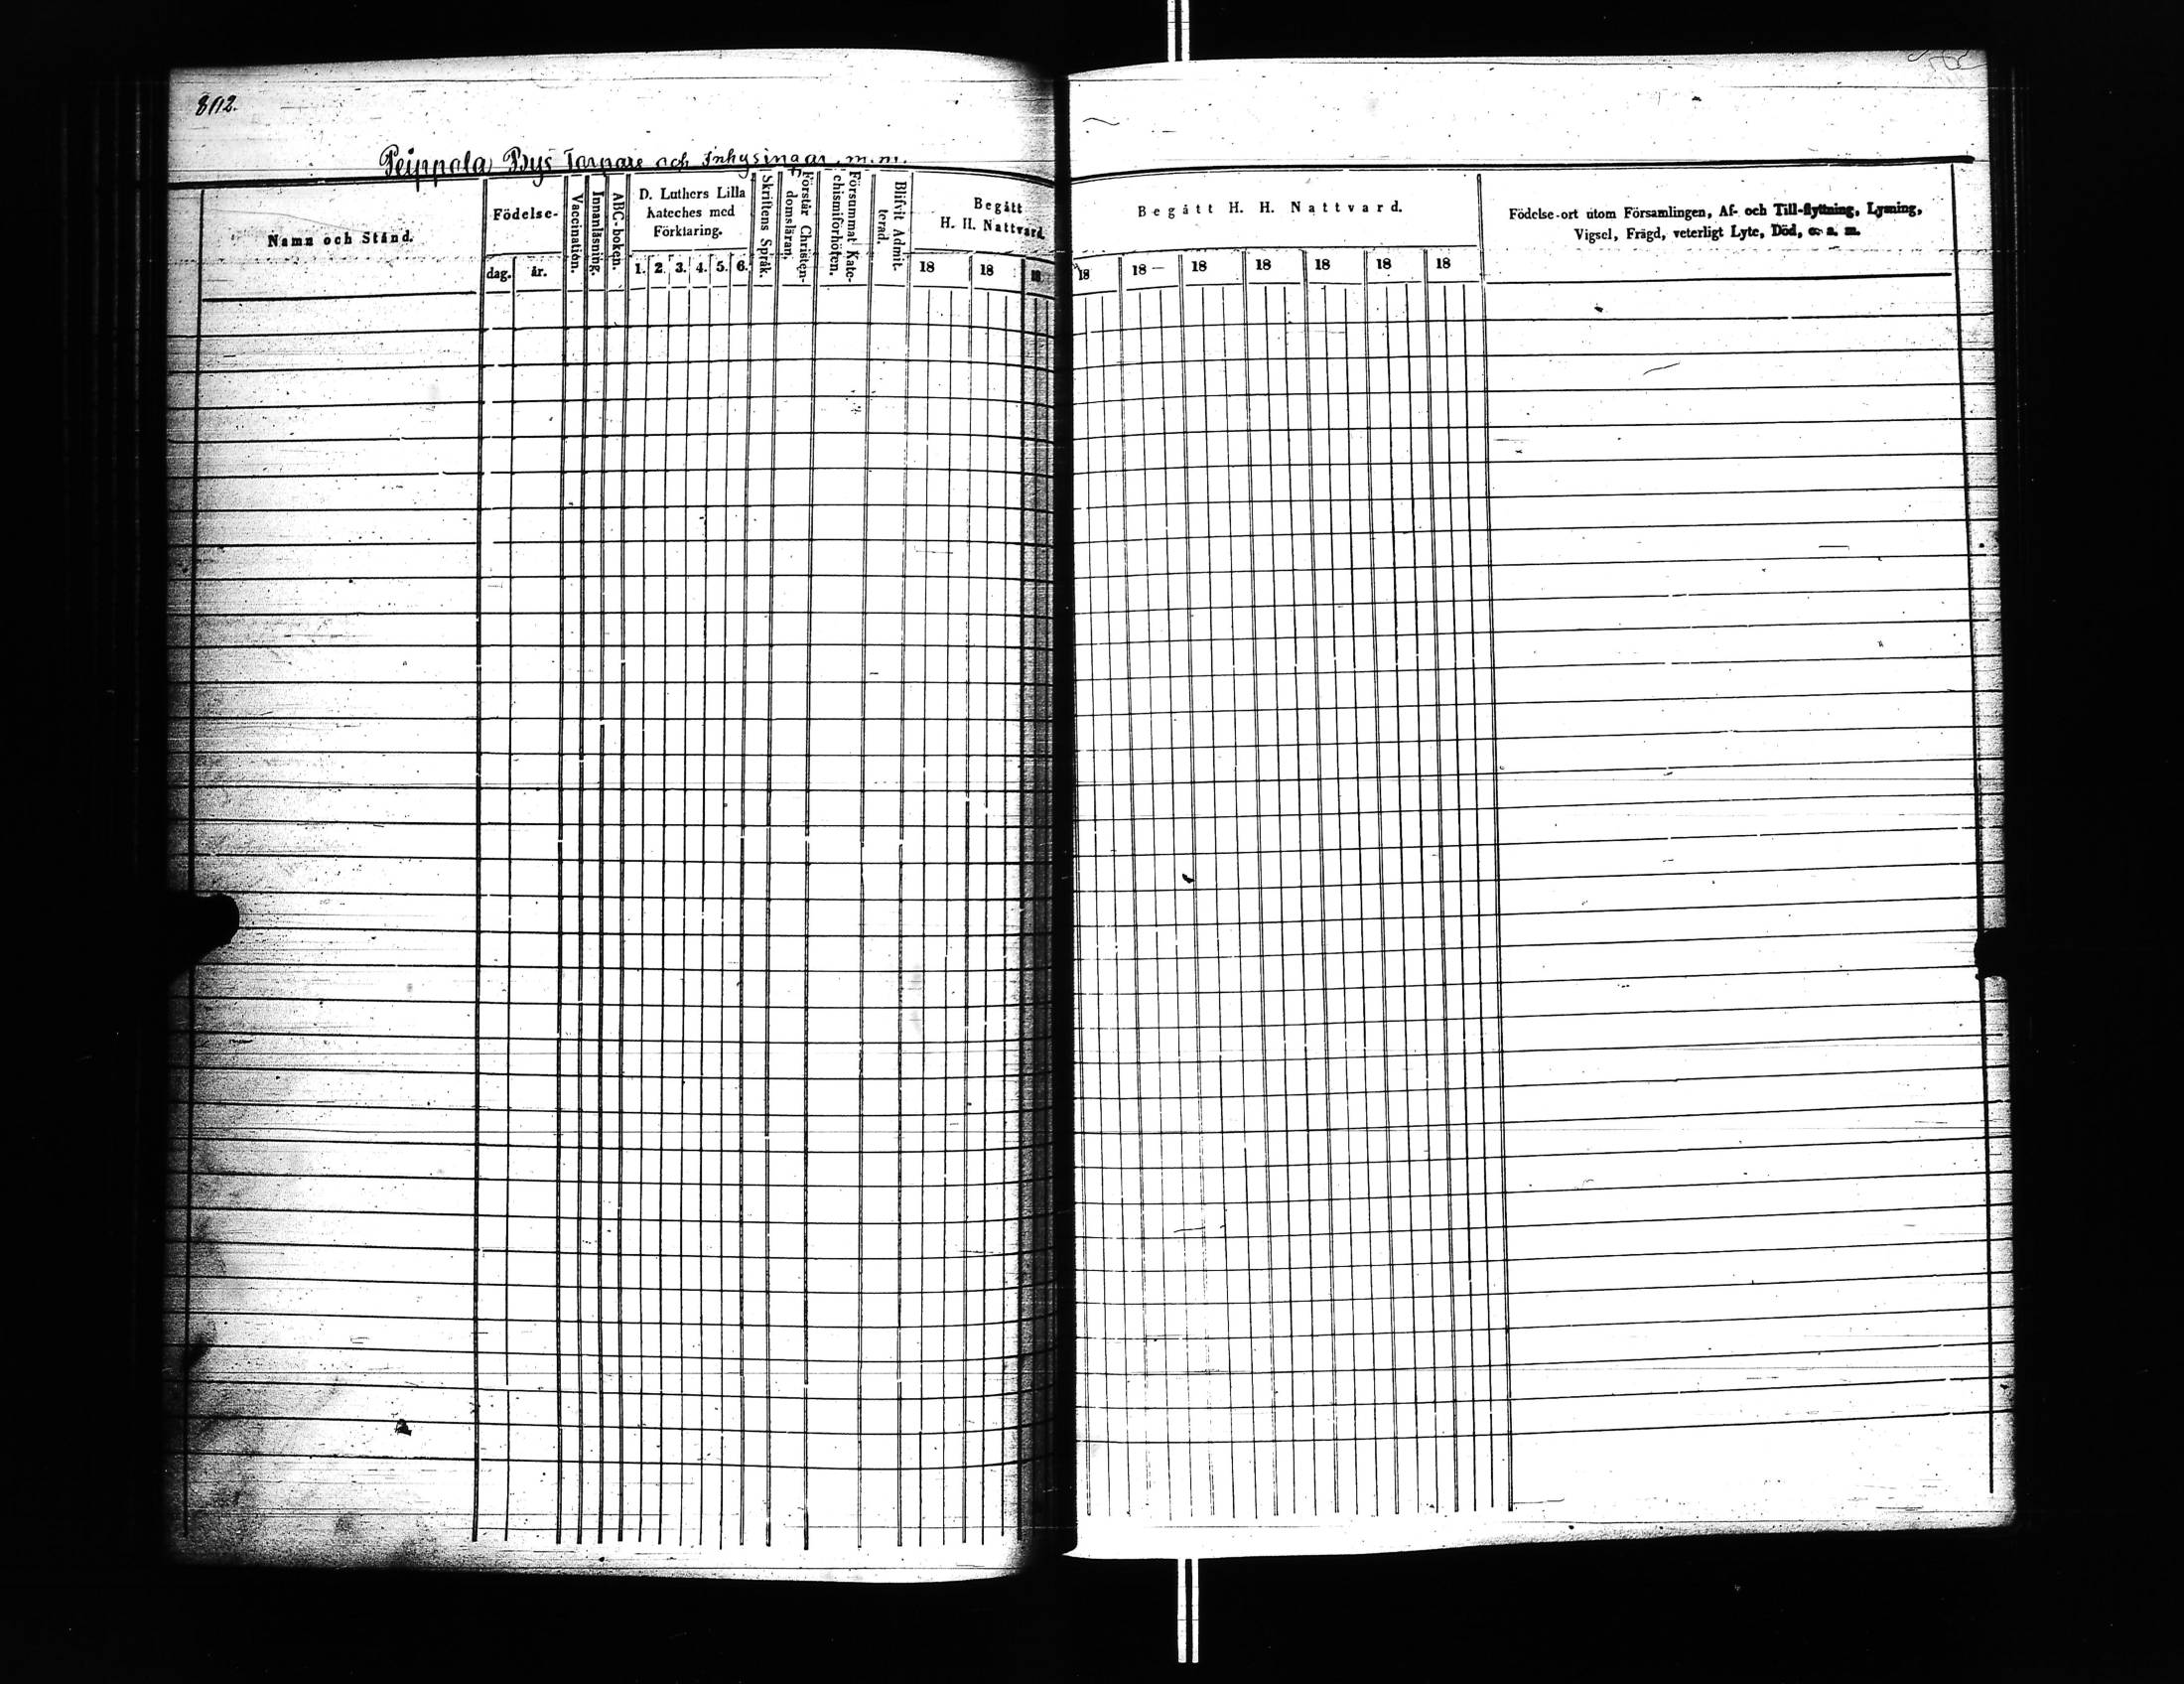 Peippola Bys Torpare och Inhysingar m.m.
Namn och Stånd.
Födelse-
dag.
år.
Vaccination.
Innanläsning.
ABC-boken.
D. Luthers Lilla
Kateches med
Förklaring.
1. 2. 3. 4. 5. 6.
Skriftens Språk.
Förstår Christen-
domsläran.
Försummat Kate-
chismiförhören.
Blifvit Admit-
terad.
Begått
H. H. Nattvard.
18 18 18
Begått H. H. Nattvard.
18 18 18 18 18 18 18
Födelse-ort utom Församlingen, Af- och Till-flyttning, Lysning,
Vigsel, Frägd, veterligt Lyte, Död, &c a. m.